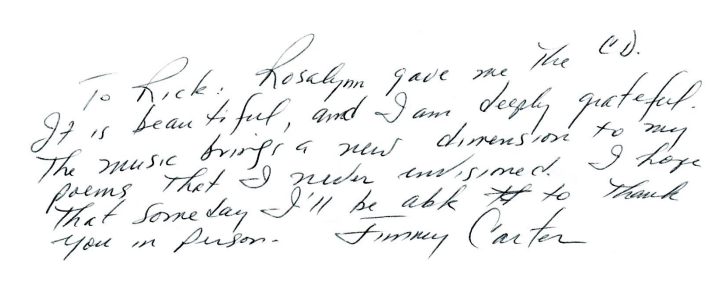 To Rick: Rosalynn gave me the CD.
It is beautiful, and I am deeply grateful.
The music brings a new dimension to my
poems that I never envisioned. I hope
that someday I'll be able to thank
you in person. Jimmy Carter